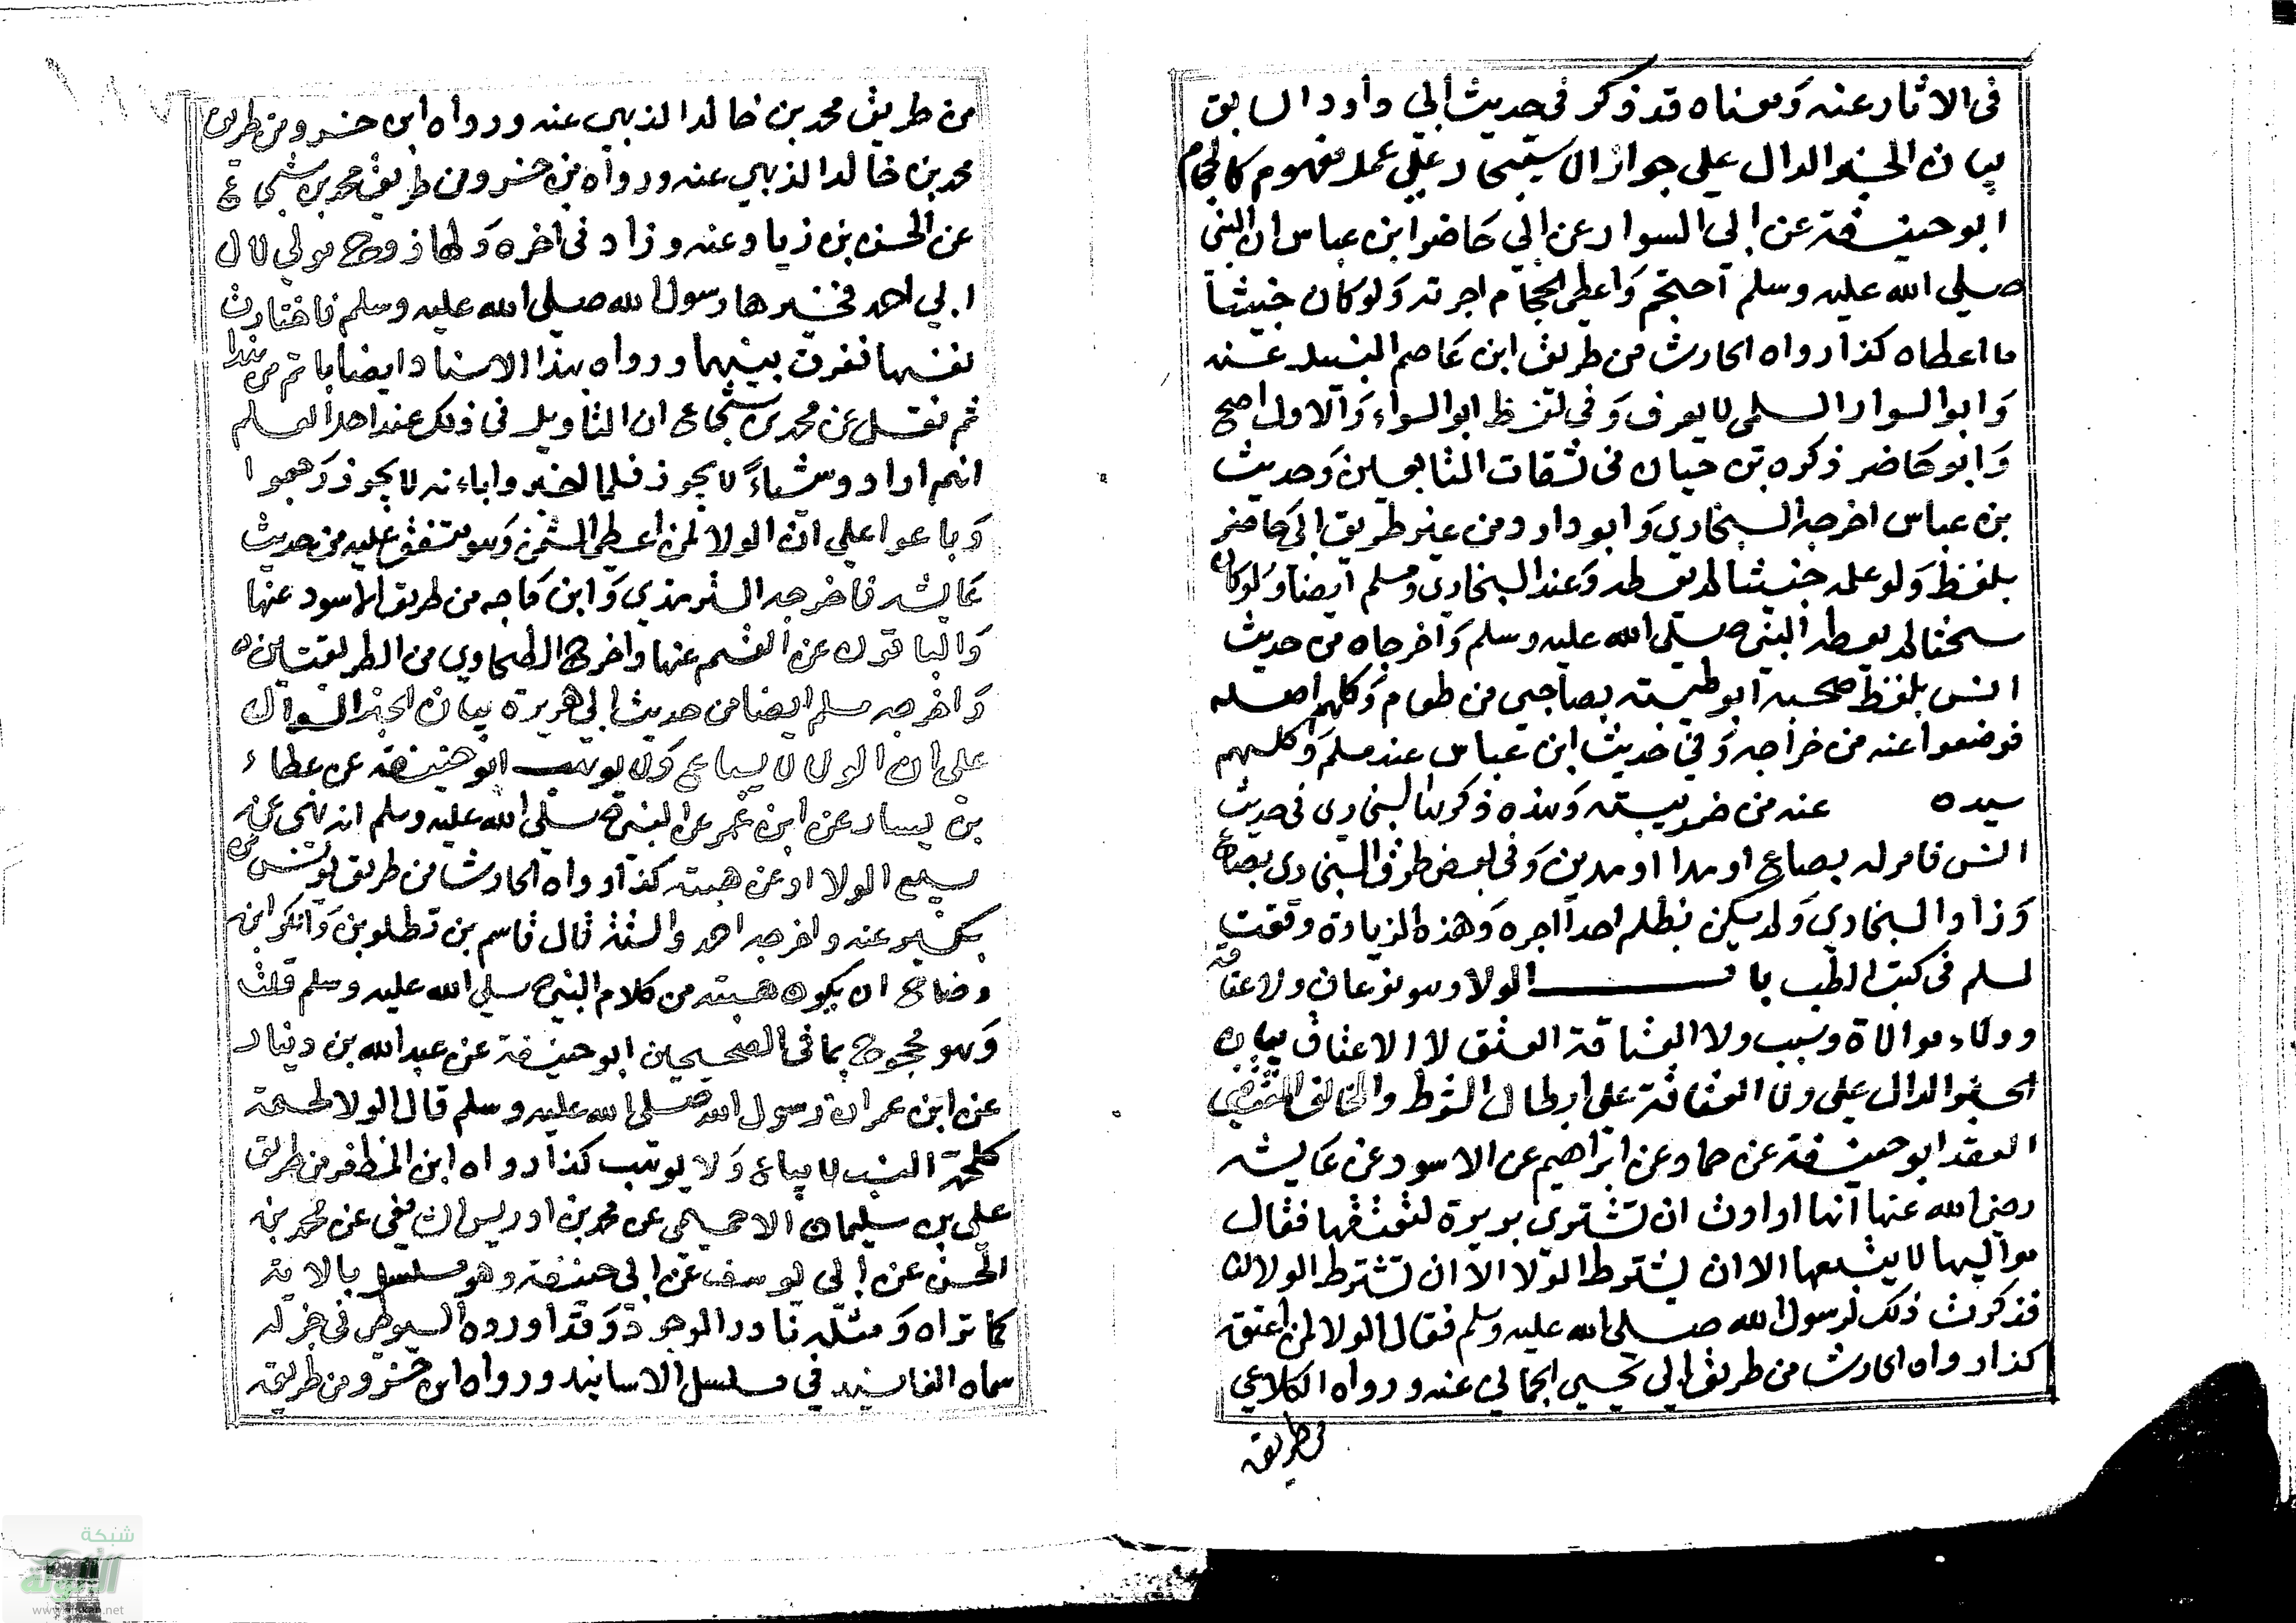 في الاثار عنه ومعناه قد ذكر في حديث أبي داود السابق
بيان الخبر الدال علي جواز الاستيجار علي عمل مفهوم كالحجام
ابو حنيفة عن ابي السوار عن ابي حاضر ابن عباس ان النبي
صلي الله عليه وسلم احتجم واعطي الحجام اجرته ولو كان خبيثا
ما اعطاه كذا رواه الحارث من طريق ابن عاصم النبيل عنه
وابو السوار السلمي لا يعرف وفي لفظ ابو السواء والاول اصح
وابو حاضر ذكره بن حبان في ثقات التابعين وحديث
بن عباس اخرجه البخاري وابو داود من غير طريق ابي حاضر
بلفظ ولو علمه خبيثا لم يعطه وعند البخاري ومسلم ايضا ولو كان
سحتا لم يعطه النبي صلي الله عليه وسلم واخرجاه من حديث
انس بلفظ حجمه ابو طيبته بصاحبي من طعام وكلم اهله
فوضعوا عنه من خراجه وفي حديث ابن عباس عند مسلم وكلمهم
سيده عنه من ضريبته وهذه ذكرها البخاري في حديث
انس فامر له بصاع او مد او مدين وفي بعض طرق البخاري بصاع
وزاد البخاري ولم يكن بظلم احدا اجره وهذه الزيادة وقعت
لمسلم في كتب الطب باب الولا وهو نوعان ولا عتاقه
وولاء موالاة وسبب ولا العتاقة العتق لا الاعتاق بيان
الخبر الدال علي ولا العتاقة علي ابطال الشرط والمخالف المقتضي
العقد ابو حنيفة عن حماد عن ابراهيم عن الاسود عن عايشه
رضي الله عنها انها ارادت ان تشتري بريرة لتعتقها فقال
مواليها لا يبيعها الا ان يشترط الولا الا ان تشترط الولا لنا
فذكرت ذلك لرسول الله صلي الله عليه وسلم فقال الولا لمن اعتق
كذا رواه الحارث من طريق ابي يحيي الحماني عنه ورواه الكلاعي
من طريق
من طريق محمد بن خالد الذهبي عنه ورواه ابن خسرو من طريق
محمد بن خالد الذهبي عنه ورواه بن خسرو من طريق محمد بن شجاع
عن الحسن بن زياد عنه وزاد في اخره ولها زوج مولي لال
ابي احمد فخيرها رسول الله صلي الله عليه وسلم فاختارت
نفسها ففرق بينهما ورواه بهذا الاسناد ايضا باتم من هذا
ثم نقل عن محمد بن شجاع ان التاويل في ذلك عند اهل العلم
انهم ارادوا شياً لا يجوز فلما اخبر واباءنه لا يجوز رجعوا
وباعوا علي ان الولا لمن اعطي الثمن وهو متفق عليه من حديث
عايشه فاخرجه الترمذي وابن ماجه من طريق الاسود عنها
والباقون عن القسم عنها واخرج الطحاوي من الطريقين
واخرجه مسلم ايضا من حديث ابي هريرة بيان الخبر الدال
علي ان الولا لا يباع ولا يوهب ابو حنيفة عن عطاء
بن يسار عن ابن عمر عن النبي صلي الله عليه وسلم انه نهي عن
بيع الولا او عن هبته كذا رواه الحارث من طريق يونس بن
بكير عنه واخرجه احمد والستة قال قاسم بن قطلوبن وانكر ابن
وضاح ان يكون هبته من كلام النبي صلي الله عليه وسلم قلت
وهو محجوج بما في الصحيحين ابو حنيفة عن عبد الله بن دينار
عن ابن عمر ان رسول الله صلي الله عليه وسلم قال الولا لحمة
كلحمة النسب لا يباع ولا يوهب كذا رواه ابن المظفر من طريق
علي بن سليمان الاحميمي عن محمد بن ادريس الشافعي عن محمد بن
الحسن عن ابي يوسف عن ابي حنيفة وهو مسلسل بالايمة
كما تراه ومثله نادر الوجود وقد اورده السيوطي في جزء له
سماه الفانيد في مسلسل الاسانيد ورواه ابن خسرو من طريقه
شبكة
الألوكة